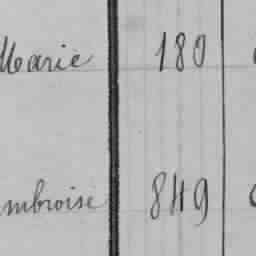 Marie 180
mbroise 849